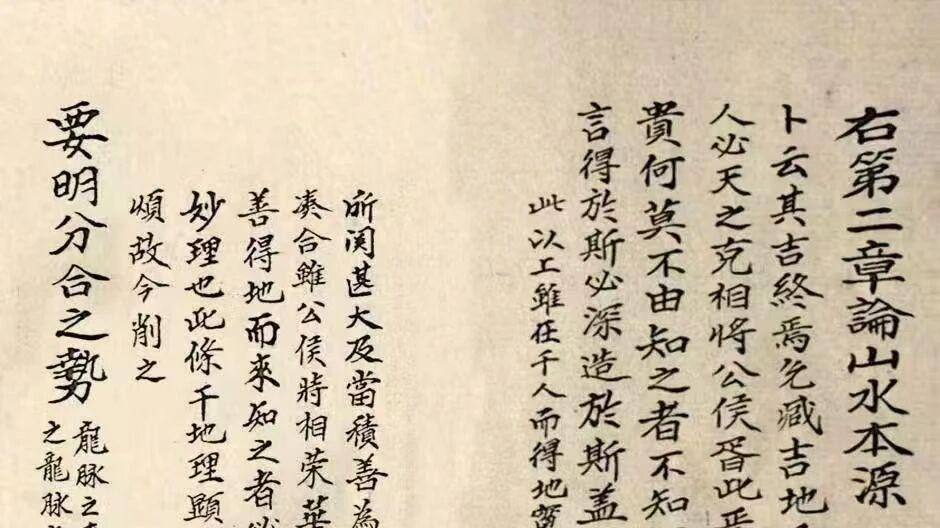 右第二章論山水本源
卜云其吉終焉允臧吉地
人必天之克相將公侯胥此
貴何莫不由知之者不知
言得於斯必深造於斯蓋
此以工雖在千人而得地
所関甚大及當積善為
凑合雖公侯時相荣華
善得地而來知之者
妙理也此條千地理顕
頌故今削之
要明分合之勢
龍脉之
之龍脉